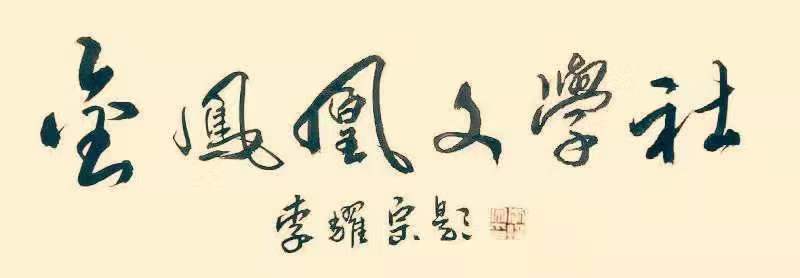 金鳳凰文學社
李耀宗題